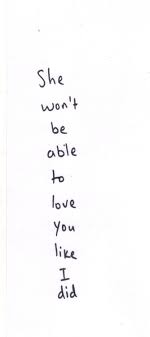 She
won't
be
able
to
love
you
like
I
did